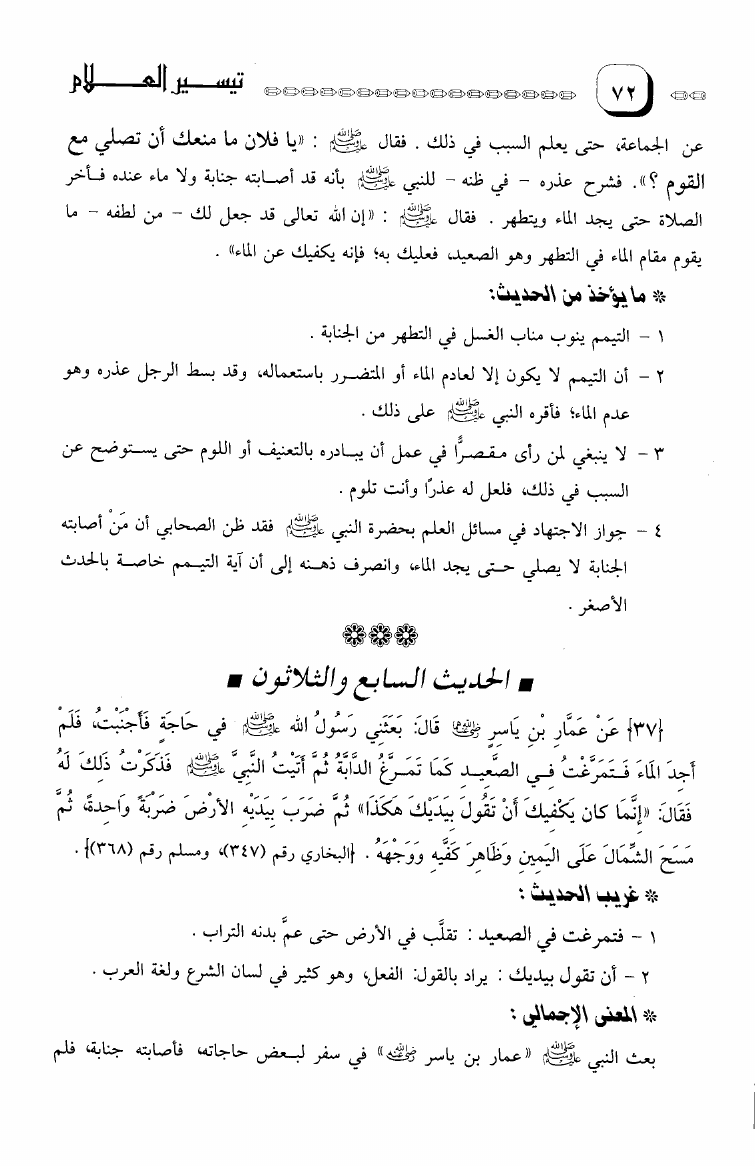 ٧٢ تيســـير العـــــلام
عن الجماعة، حتى يعلم السبب في ذلك . فقال ﷺ : «يا فلان ما منعك أن تصلي مع
القوم ؟». فشرح عذره - في ظنه - للنبي ﷺ بأنه قد أصـابته جنابة ولا ماء عنده فـأخر
الصلاة حتى يجد الماء ويتطهر . فقال ﷺ : «إن الله تعالى قد جعل لك - من لطفه - ما
يقوم مقام الماء في التطهر وهو الصعيد، فعليك به؛ فإنه يكفيك عن الماء» .
* ما يؤخذ من الحديث:
١ - التيمم ينوب مناب الغسل في التطهر من الجنابة .
٢ - أن التيمم لا يكون إلا لعادم الماء أو المتضـرر باستعماله، وقد بسط الرجل عذره وهو
عدم الماء؛ فأقره النبي ﷺ على ذلك .
٣ - لا ينبغي لمن رأى مـقـصـرًّا في عمل أن يبـادره بالتعنيف أو اللوم حتى يسـتوضح عن
السبب في ذلك، فلعل له عذرًا وأنت تلوم .
٤ - جواز الاجتهاد في مسائل العلم بحضرة النبي ﷺ فقد ظن الصحابي أن مَنْ أصابته
الجنابة لا يصلي حـتى يجد الماء، وانصرف ذهـنه إلى أن آية التيـمم خاصـة بالحدث
الأصغر .
■ الحديث السابع والثلاثون ■
{٣٧} عَنْ عَمَّارِ بْنِ يَاسِرٍ رضي الله عنهما قَالَ: بَعَثَنِي رَسُولُ الله ﷺ في حَاجَةٍ فَأَجْنَبْتُ، فَلَمْ
أَجِدَ المَاءَ فَـتَمَرَّغْتُ فـي الصَّعِيـدِ كَمَا تَمَـرَّغُ الدَّابَّةُ ثُمَّ أَتَيْتُ النَّبِيَّ ﷺ فَذَكَرْتُ ذَلِكَ لَهُ
فَقَالَ: «إِنَّمَا كان يَكْفِيكَ أَنْ تَقُولَ بِيَدَيْكَ هَكَذَا» ثُمَّ ضَرَبَ بِيَدَيْهِ الأرْضَ ضَرْبَةً وَاحدةً، ثُمَّ
مَسَحَ الشِّمَالَ عَلَى اليَمِينِ وَظَاهِرَ كَفَّيهِ وَوَجْهَهُ . {البخاري رقم (٣٤٧)، ومسلم رقم (٣٦٨)} .
* غريب الحديث :
١ - فتمرغت في الصعيد : تقلَّب في الأرض حتى عمَّ بدنه التراب .
٢ - أن تقول بيديك : يراد بالقول: الفعل، وهو كثير في لسان الشرع ولغة العرب .
* المعنى الإجمالي :
بعث النبي ﷺ «عمار بن ياسر رضي الله عنه» في سفر لبـعض حاجاته، فأصابته جنابة، فلم